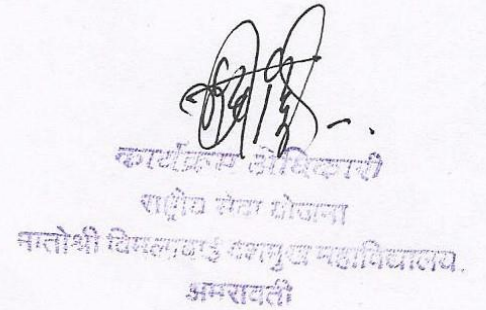 कार्यक्रम अधिकारी
राष्ट्रीय सेवा योजना
मातोश्री विमलाबाई देशमुख महाविद्यालय.
अमरावती